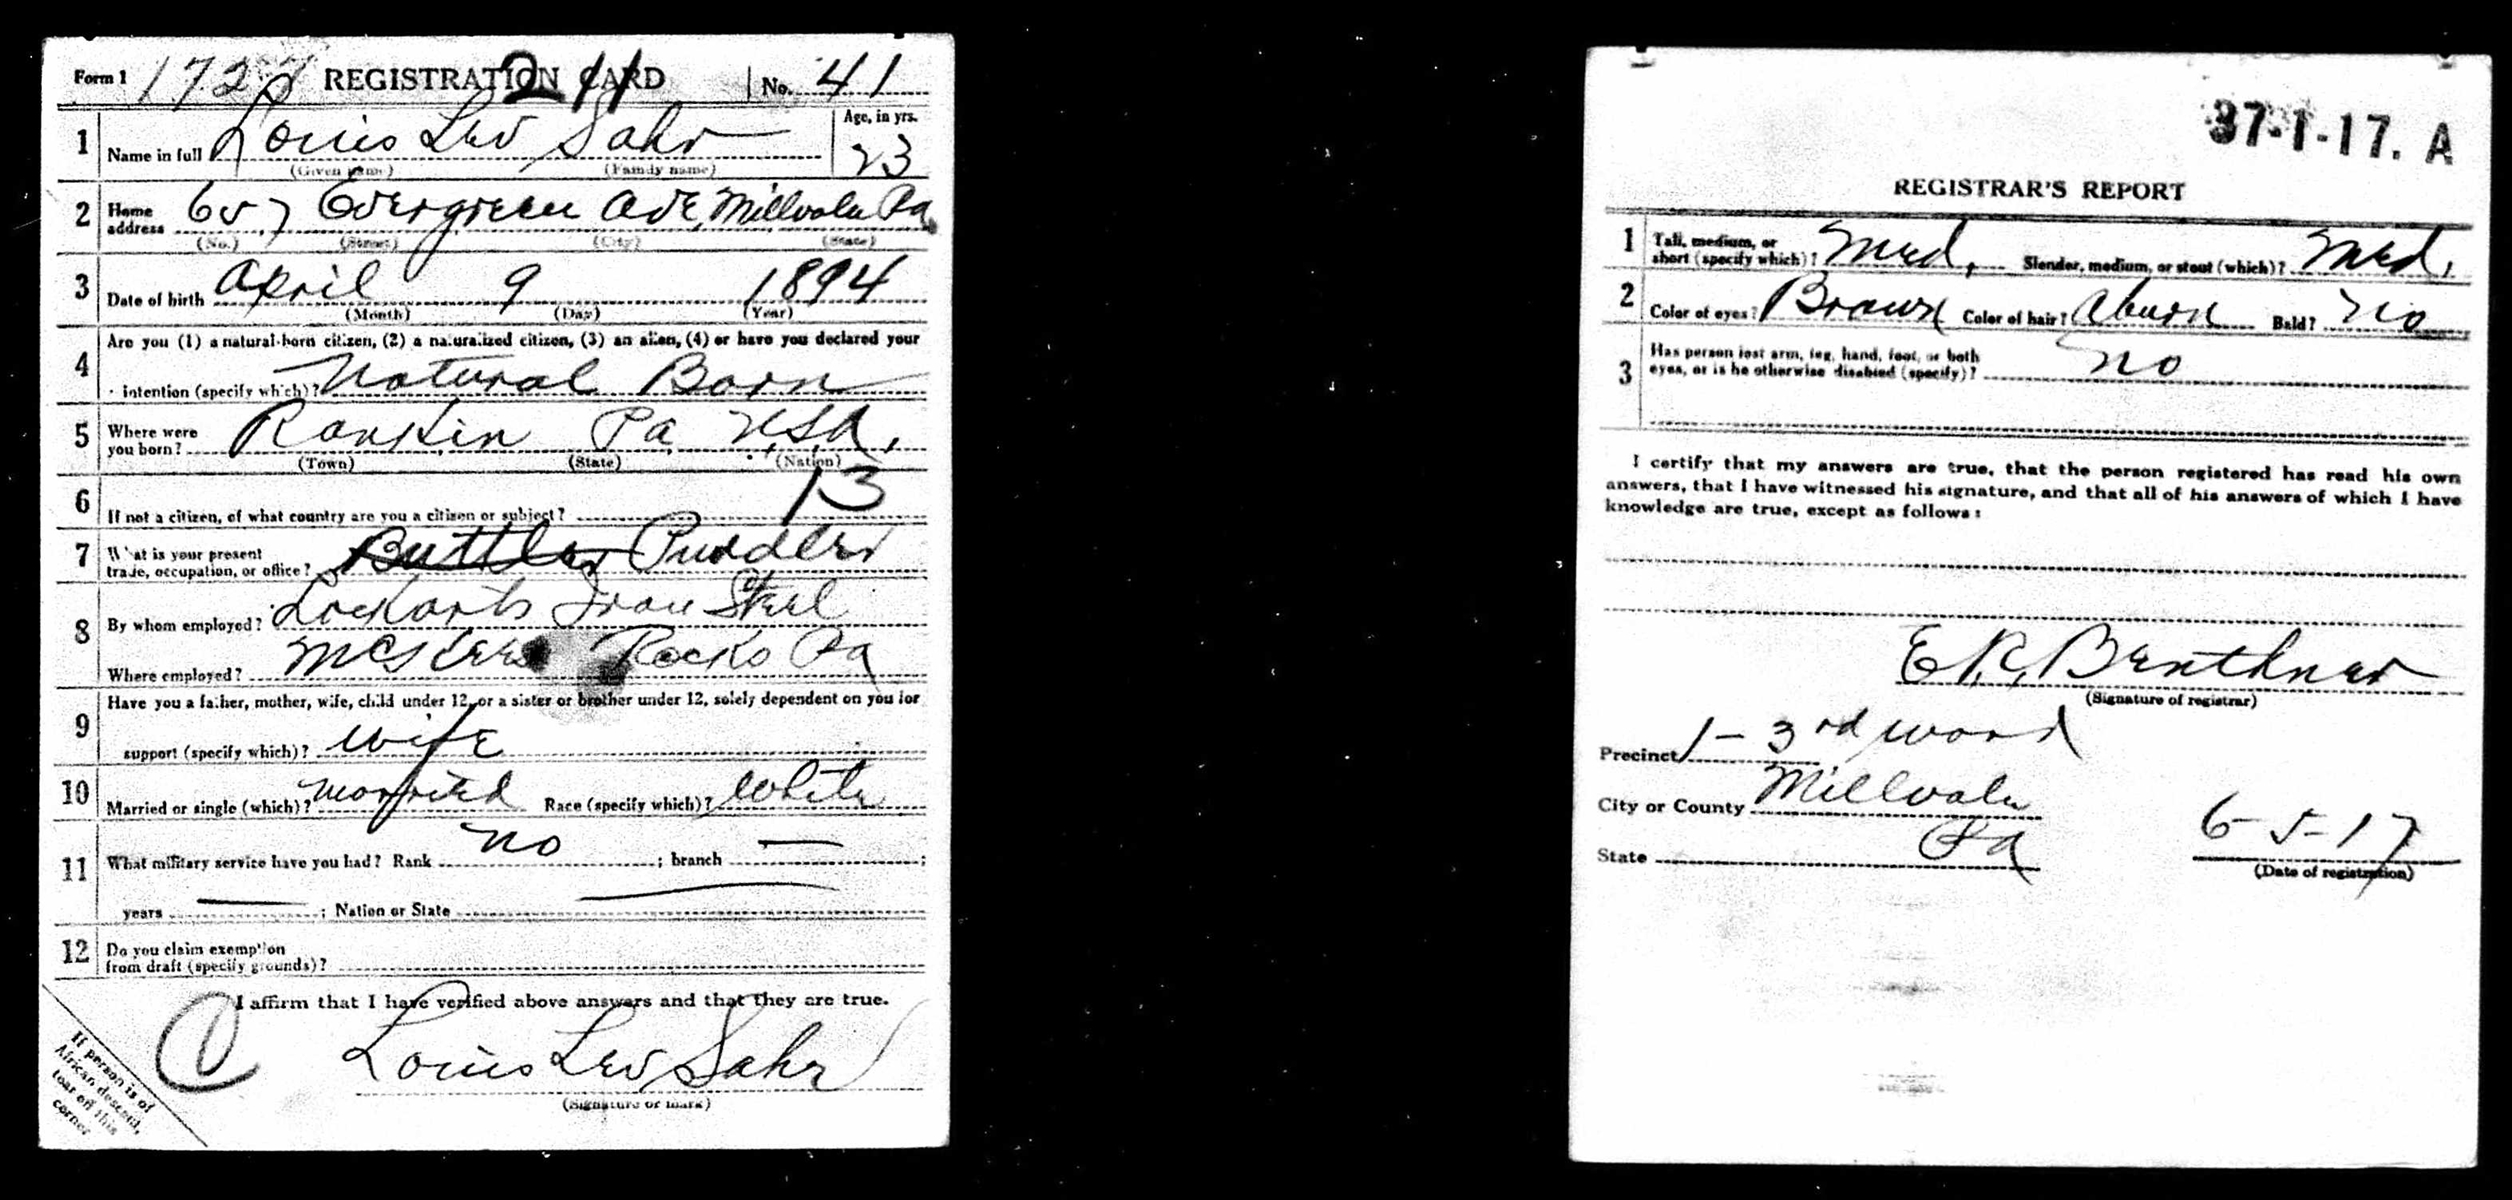 Form 1 1727 REGISTRATION CARD 2 11 No. 41
1 Name in full Louis Leo Sahr Age, in yrs. 23
(Given name) (Family name)
2 Home address 657 Evergreen Ave, Millvale Pa.
(No.) (Street) (City) (State)
3 Date of birth April 9 1894
(Month) (Day) (Year)
4 Are you (1) a natural-born citizen, (2) a naturalized citizen, (3) an alien, (4) or have you declared your
intention (specify which)? Natural Born
5 Where were you born? Rankin Pa U.S.A.
(Town) (State) (Nation)
13
6 If not a citizen, of what country are you a citizen or subject?
7 What is your present trade, occupation, or office? Puddler
8 By whom employed? Lockarts Iron Steel
Where employed? McKees Rocks Pa
9 Have you a father, mother, wife, child under 12, or a sister or brother under 12, solely dependent on you for
support (specify which)? wife
10 Married or single (which)? married Race (specify which)? White
11 What military service have you had? Rank no ; branch — ;
years — ; Nation or State —
12 Do you claim exemption
from draft (specify grounds)?
I affirm that I have verified above answers and that they are true.
Louis Leo Sahr
(Signature or mark)
If person is of
African descent,
tear off this
corner
37-1-17. A
REGISTRAR'S REPORT
1 Tall, medium, or short (specify which)? Med. Slender, medium, or stout (which)? Med.
2 Color of eyes? Brown Color of hair? Aburn Bald? No
3 Has person lost arm, leg, hand, foot, or both
eyes, or is he otherwise disabled (specify)? No
I certify that my answers are true, that the person registered has read his own
answers, that I have witnessed his signature, and that all of his answers of which I have
knowledge are true, except as follows:
E. R. Benthner
(Signature of registrar)
Precinct 1 - 3rd ward
City or County Millvale
State Pa 6-5-17
(Date of registration)